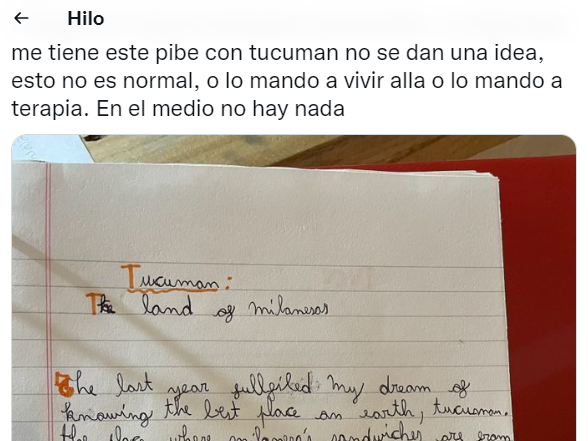 Hilo
me tiene este pibe con tucuman no se dan una idea,
esto no es normal, o lo mando a vivir alla o lo mando a
terapia. En el medio no hay nada
Tucuman:
The land of milanesas
The last year fullfiled my dream of
knowing the best place on earth, tucuman.
the place where milanesa's sandwiches are from